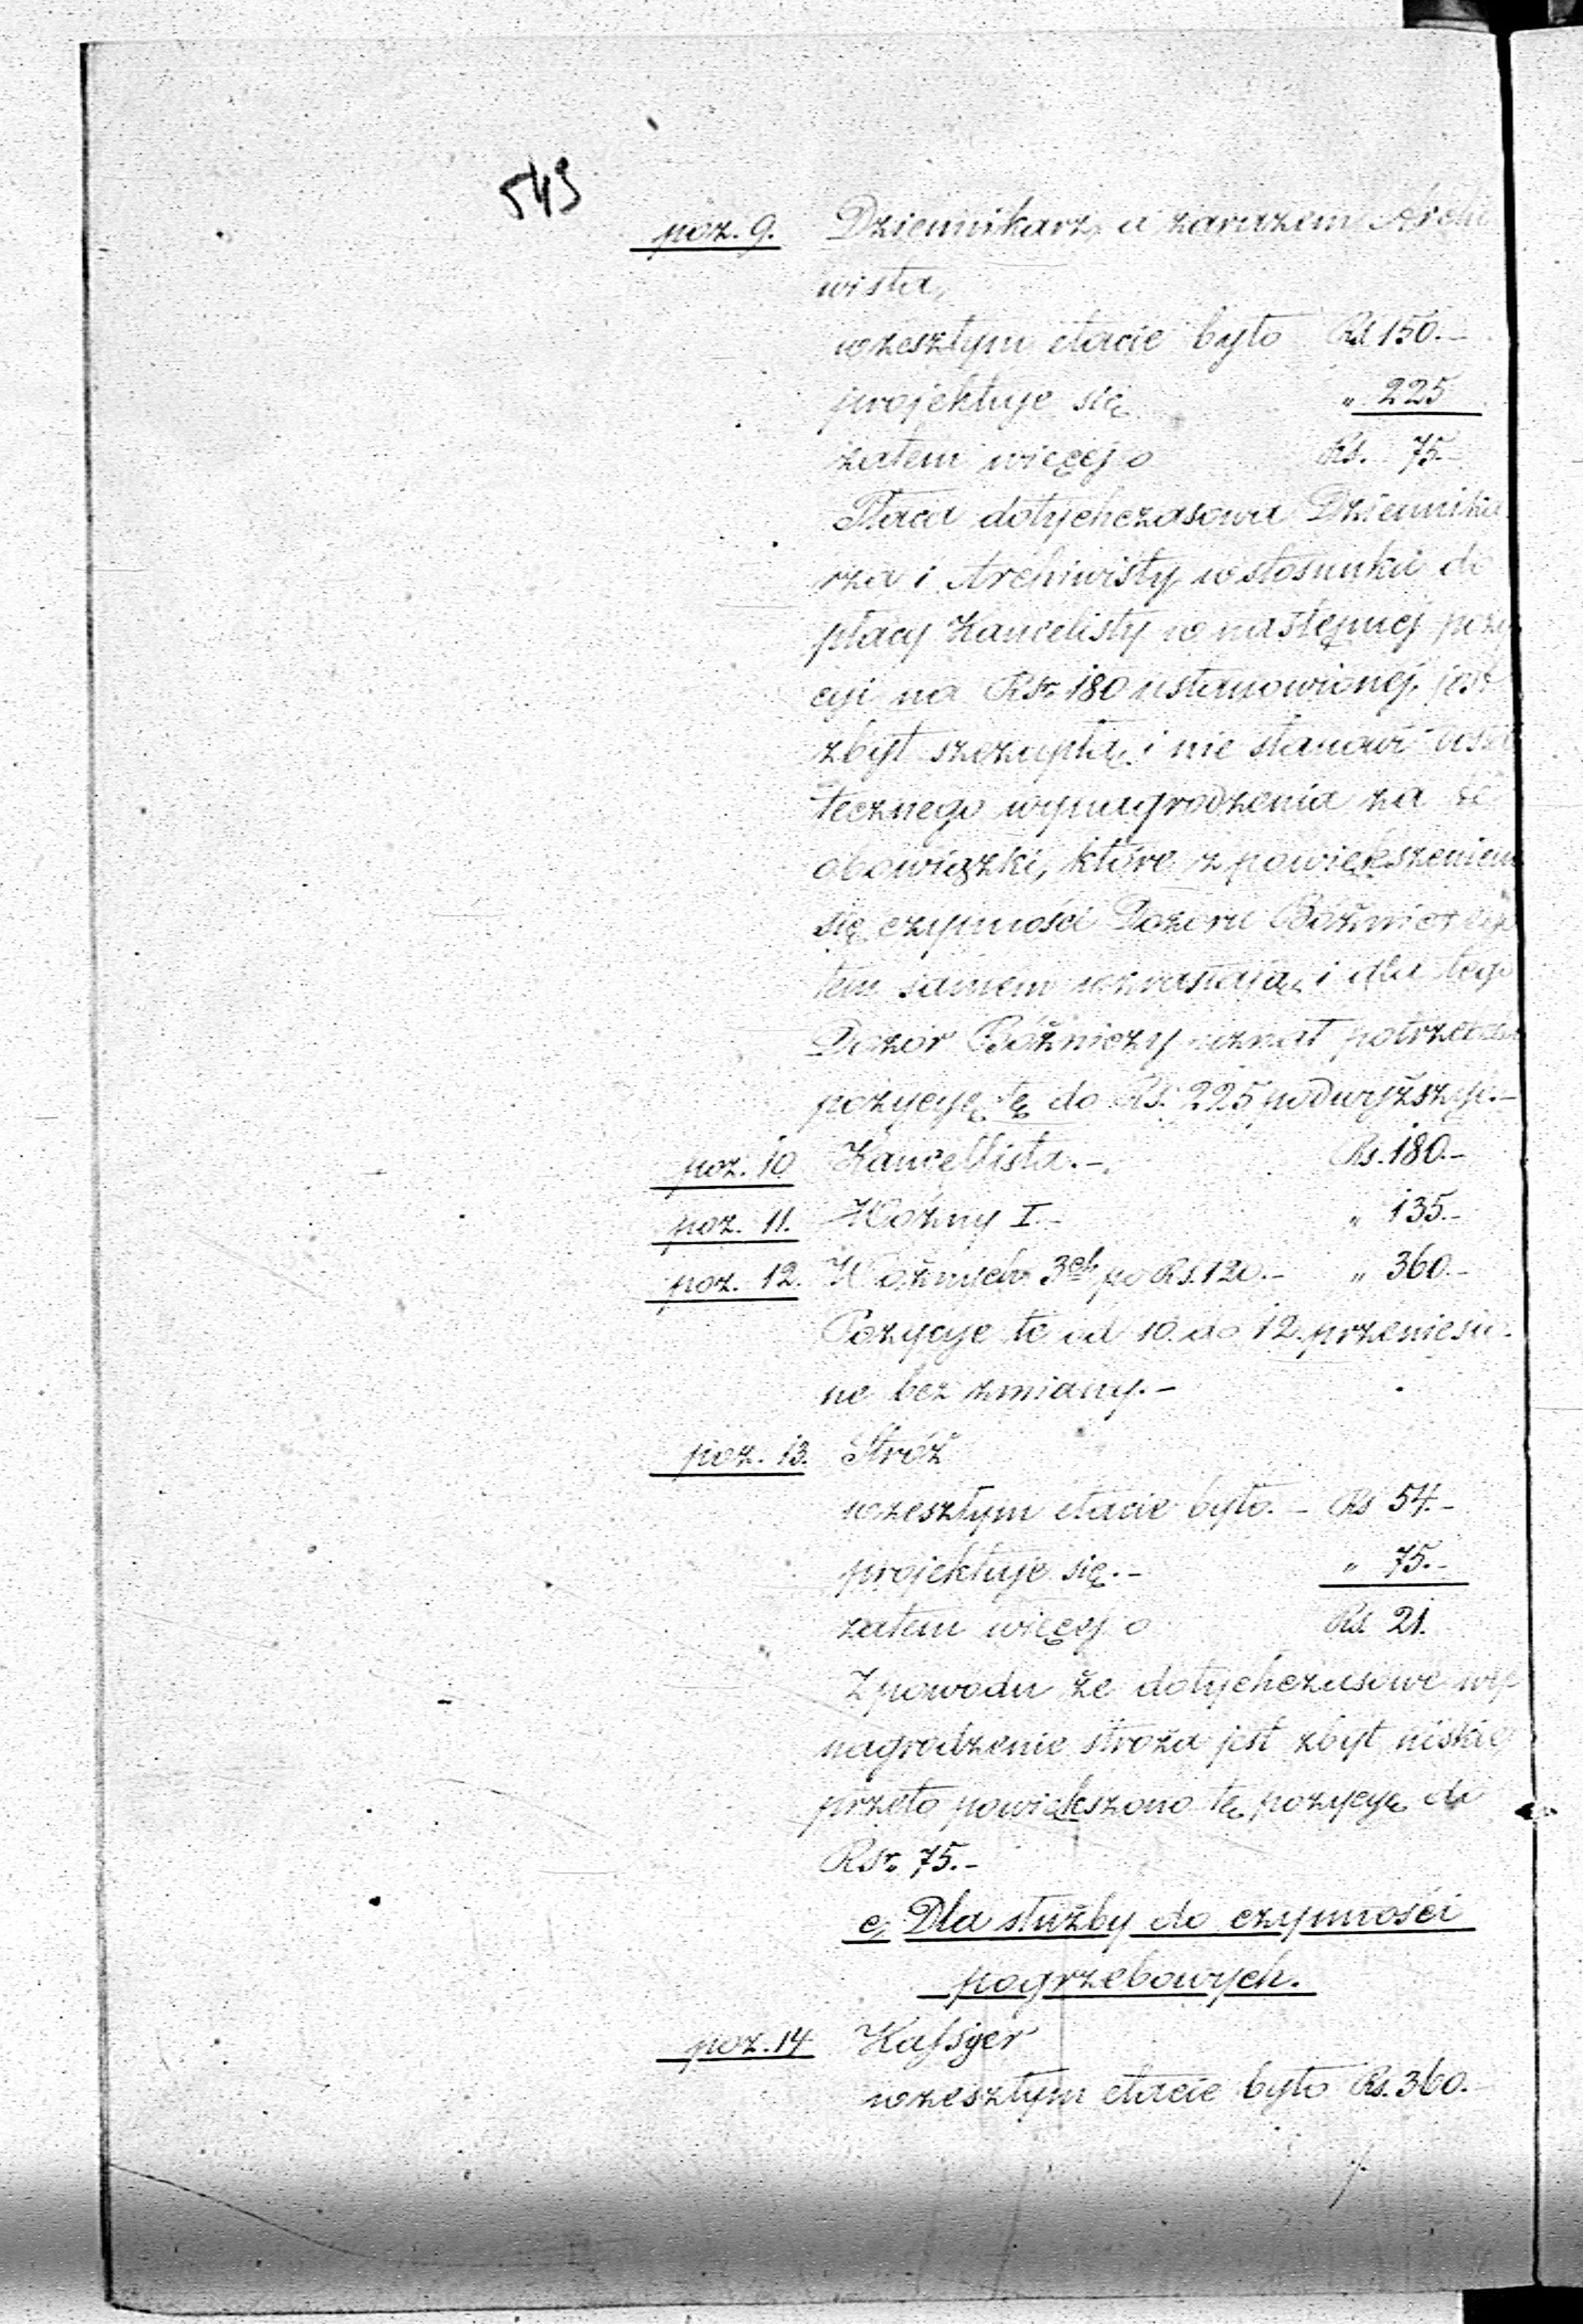 549
poz. 9. Dziennikarz, a zarazem Archi
wista,
w zeszłym etacie było Rs 150.-
projektuje się „ 225
zatem więcej o Rs. 75.-
Płaca dotychczasowa Dziennika
rza i Archiwisty w stosunku do
płacy Kancelisty w następnej pozy
cyi na Rsr. 180 ustanowionej, jest
zbyt szczupłą i nie stanowi
tecznego wynagrodzenia za te
obowiązki, które z powiększeniem
się czynności Dozoru Bóżniczego
tem samem wzrastają, i dla tego
Dozór Bóżniczy uznał potrzebę
pozycyę tę do Rs. 225 podwyższyć.-
poz. 10 Kancellista.- Rs. 180.-
poz. 11. Woźny I.- „ 135.-
poz. 12. Woźnych 3ch po Rs. 120.- „ 360.-
Pozycye te od 10 do 12. przeniesio-
ne bez zmiany.-
poz. 13. Stróż
w zeszłym etacie było.- Rs 54.-
projektuje się.- „ 75.-
zatem więcej o Rs. 21.
Z powodu że dotychczasowe wy
nagrodzenie stroża jest zbyt niskie,
przeto powiększono tę pozycyę do
Rsr. 75.-
c, Dla służby do czynności
pogrzebowych.
poz. 14 Kassyer
w zeszłym etacie było Rs. 360.-